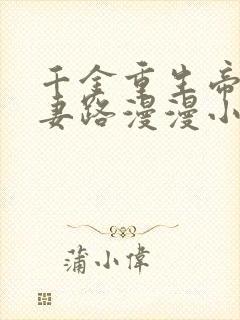 千金重生帝
妻路漫漫小
蒲小偉